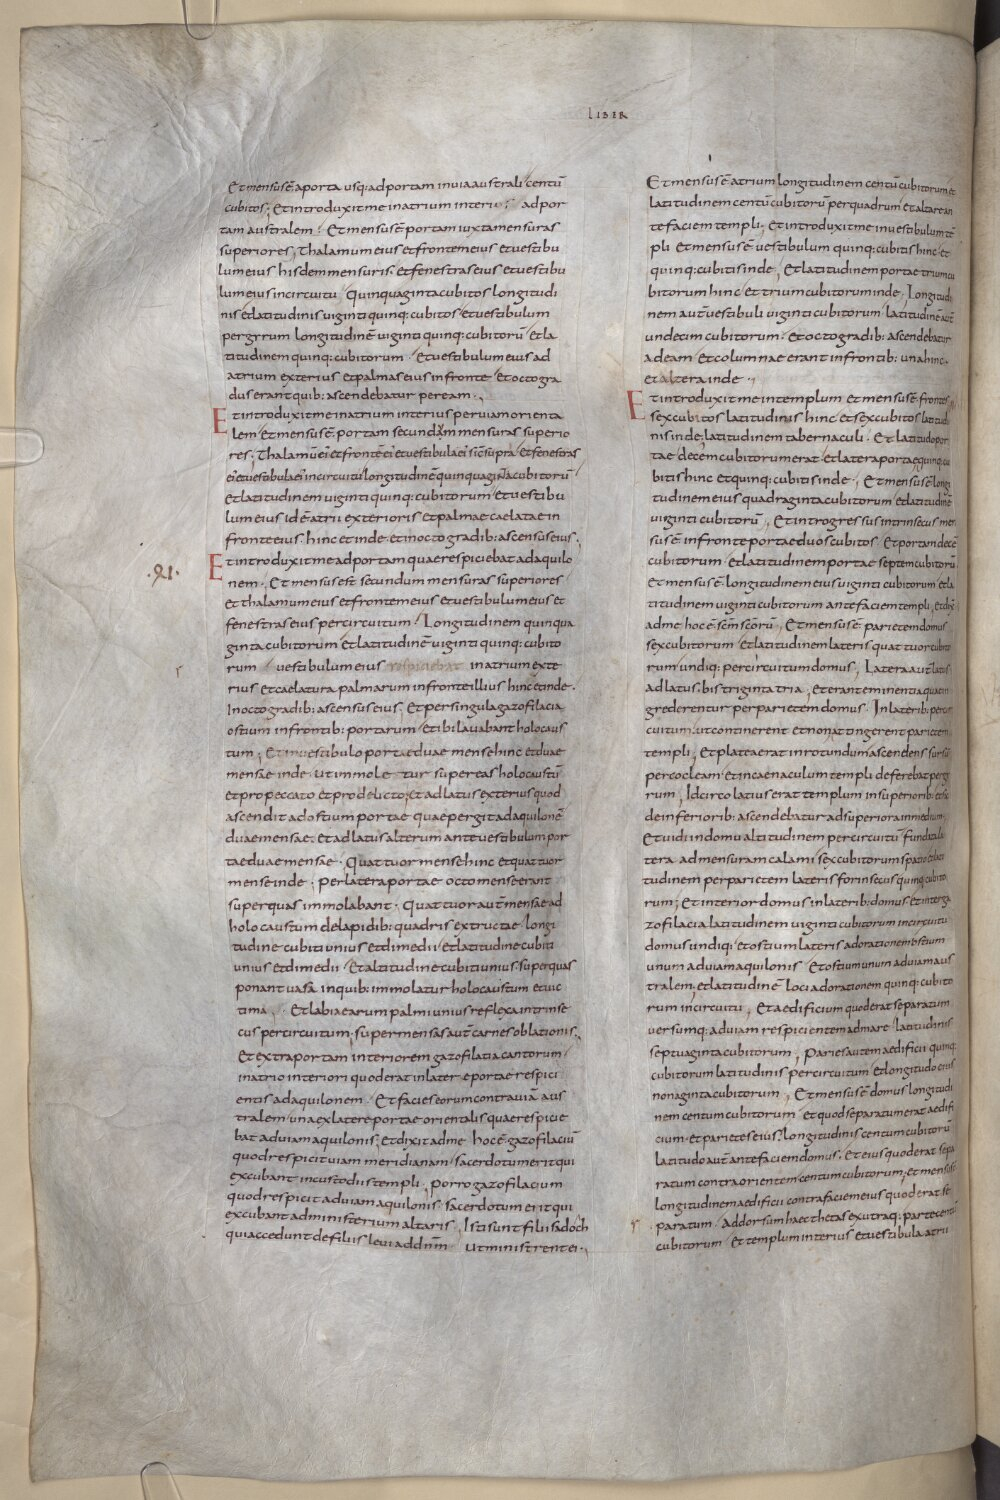 LIBER
Et mensus ē a porta usq; ad portam in via australi centū
cubitos; Et introduxit me in atrium interiu; ad por
tam australem; Et mensus ē portam iuxta mensuras
superiores, Thalamum eius et frontem eius et uestibu
lum eius hisdem mensuris et fenestras eius et uestibu
lum eius in circuitu Quinquaginta cubitos longitudi
nis et latitudinis uiginti quinq: cubitos et uestibulum
per grrum longitudinē uiginti quinq: cubitorū et la
titudinem quinq: cubitorum · Et uestibulum eius ad
atrium exterius et palmas eius in fronte et octo gra
dus erant quib: ascendebatur per eam·,
Et introduxit me in atrium interius per uiam orienta
lem et mensus ē portam secundam mensuras superio
res; Thalamū ei et frontē ei et uestibulū ei sic supra et fenestras
ei et uestibula ei in circuitu longitudinē quinquaginta cubitorū
et latitudinem uiginti quinq: cubitorum et uestibu
lum eius id ē atrii exterioris et palmae caelatae in
fronte eius hinc et inde et in octo gradib: ascensus eius·,
·XI·
Et introduxit me ad portam quae respiciebat ad aquilo
nem· Et mensus est secundum mensuras superiores
et thalamum eius et frontem eius et uestibulum eius et
fenestras eius per circuitum Longitudinem quinqua
ginta cubitorum et latitudinē uiginti quinq: cubito
rum uestibulum eius respiciebat in atrium exte
rius et caelatura palmarum in fronte illius hinc et inde·
In octo gradib: ascensus eius, Et per singula gazofilacia
ostium in frontib: portarum et ibi lauabant holocaus
tum, Et in uestibulo portae duae mense hinc et duae
mensae inde ut immoletur super eas holocaustū
et pro peccato et pro delicto, Et ad latus exterius quod
ascendit ad ostium portae quae pergit ad aquilonē
duae mensae· et ad latus alterum ante uestibulum por
tae duae mensae· Quattuor mense hinc et quattuor
mense inde· Per latera portae octo mense erant
super quas immolabant· Quattuor aūt mensae ad
holocaustum de lapidib: quadris extructae longi
tudine cubiti unius et dimedii et latitudine cubiti
unius et dimedii et altitudine cubiti unius· super quas
ponant uasa in quib: immolatur holocaustum et uic
tima, · Et labia earum palmi unius reflexa intrinse
cus per circuitum· super mensas aūt carnes oblationis·,
Et extra portam interiorem gazofilatia cantorum
in atrio interiori quod erat in latere portae respici
entis ad aquilonem· Et facies eorum contra uiam aus
tralem· una ex latere portae orientalis quae respicie
bat ad uiam aquilonis, et dixit ad me hoc ē gazofilaciū
quod respicit uiam meridianam sacerdotum erit qui
excubant in custodiis templi· Porro gazofilacium
quod respicit ad uiam aquilonis sacerdotum erit qui
excubant ad ministerium altaris, Isti sunt filii sadoch
qui accedunt de filiis leui ad dn̄m ut ministrent ei·,
Et mensus ē atrium longitudinem centū cubitorum et
latitudinem centū cubitorū per quadrum et altare an
te faciem templi; Et introduxit me in uestibulum tē
pli et mensus ē uestibulum quinq: cubitis hinc et
quinq: cubitis inde, Et latitudinem portae trium cu
bitorum hinc et trium cubitorum inde, Longitudi
nem aut uestibuli uiginti cubitorum latitudinē aut
undecim cubitorum et octo gradib: ascendebatur
ad eam et columnae erant in frontib: una hinc
et altera inde·
Et introduxit me in templum et mensus ē frontes
sex cubitos latitudinis hinc et sex cubitos latitudi
nis inde, latitudinem tabernaculi· Et latitudo por
tae decem cubitorum erat et latera portae quinq: cu
bitis hinc et quinq: cubitis inde, Et mensus ē longi
tudinem eius quadraginta cubitorum et latitudinē
uiginti cubitorū, Et introgressus intrinsecus men
sus ē in fronte portae duos cubitos Et portam decē
cubitorum et latitudinem portae septem cubitorū
et mensus ē longitudinem eius uiginti cubitorum et la
titudinem uiginti cubitorum ante faciem templi, et dix̄
ad me hoc ē sc̄m sc̄orū, Et mensus ē parietem domus
sex cubitorum et latitudinem lateris quattuor cubito
rum undiq: per circuitum domus, Latera aūt latus
ad latus· bis triginta tria, et erant eminentia quae in
grederentur per parietem domus· In laterib: per cir
cuitum· ut continerent et non attingerent parietem
templi, Et platea erat in rotundum ascendens sursū
per cocleam et in caenaculum templi deferebat per gi
rum, Idcirco latius erat templum in superiorib: et sic
de inferiorib: ascendebatur ad superiora in medium,
Et uidi in domu altitudinem per circuitū fundata la
tera ad mensuram calami sex cubitorum spatio et lati
tudinem per parietem lateris forinsecus quinq: cubito
rum; Et interior domus in laterib: domus et inter ga
zofilacia latitudinem uiginti cubitorum in circuitu
domus undiq: et ostium lateris ad orationem ostium
unum ad uiam aquilonis Et ostium unum ad uiam aus
tralem, et latitudinē loci ad orationem quinq: cubito
rum in circuitu, Et aedificium quod erat separatum
uersumq: ad uiam respicientem ad mare· latitudinis
septuaginta cubitorum, Paries autem aedificii quinq:
cubitorum latitudinis per circuitum et longitudo eius
nonaginta cubitorum, Et mensus ē domus longitudi
nem centum cubitorum et quod separatum erat aedifi
cium et parietes eius· longitudinis centum cubitorū
latitudo aūt ante faciem domus· et eius quod erat sepa
ratum contra orientem centum cubitorum, et mensus ē
longitudinem aedificii contra faciem eius quod erat se
paratum Ad dorsum haec thetas ex utraq: parte centū
cubitorum Et templum interius et uestibula atrii